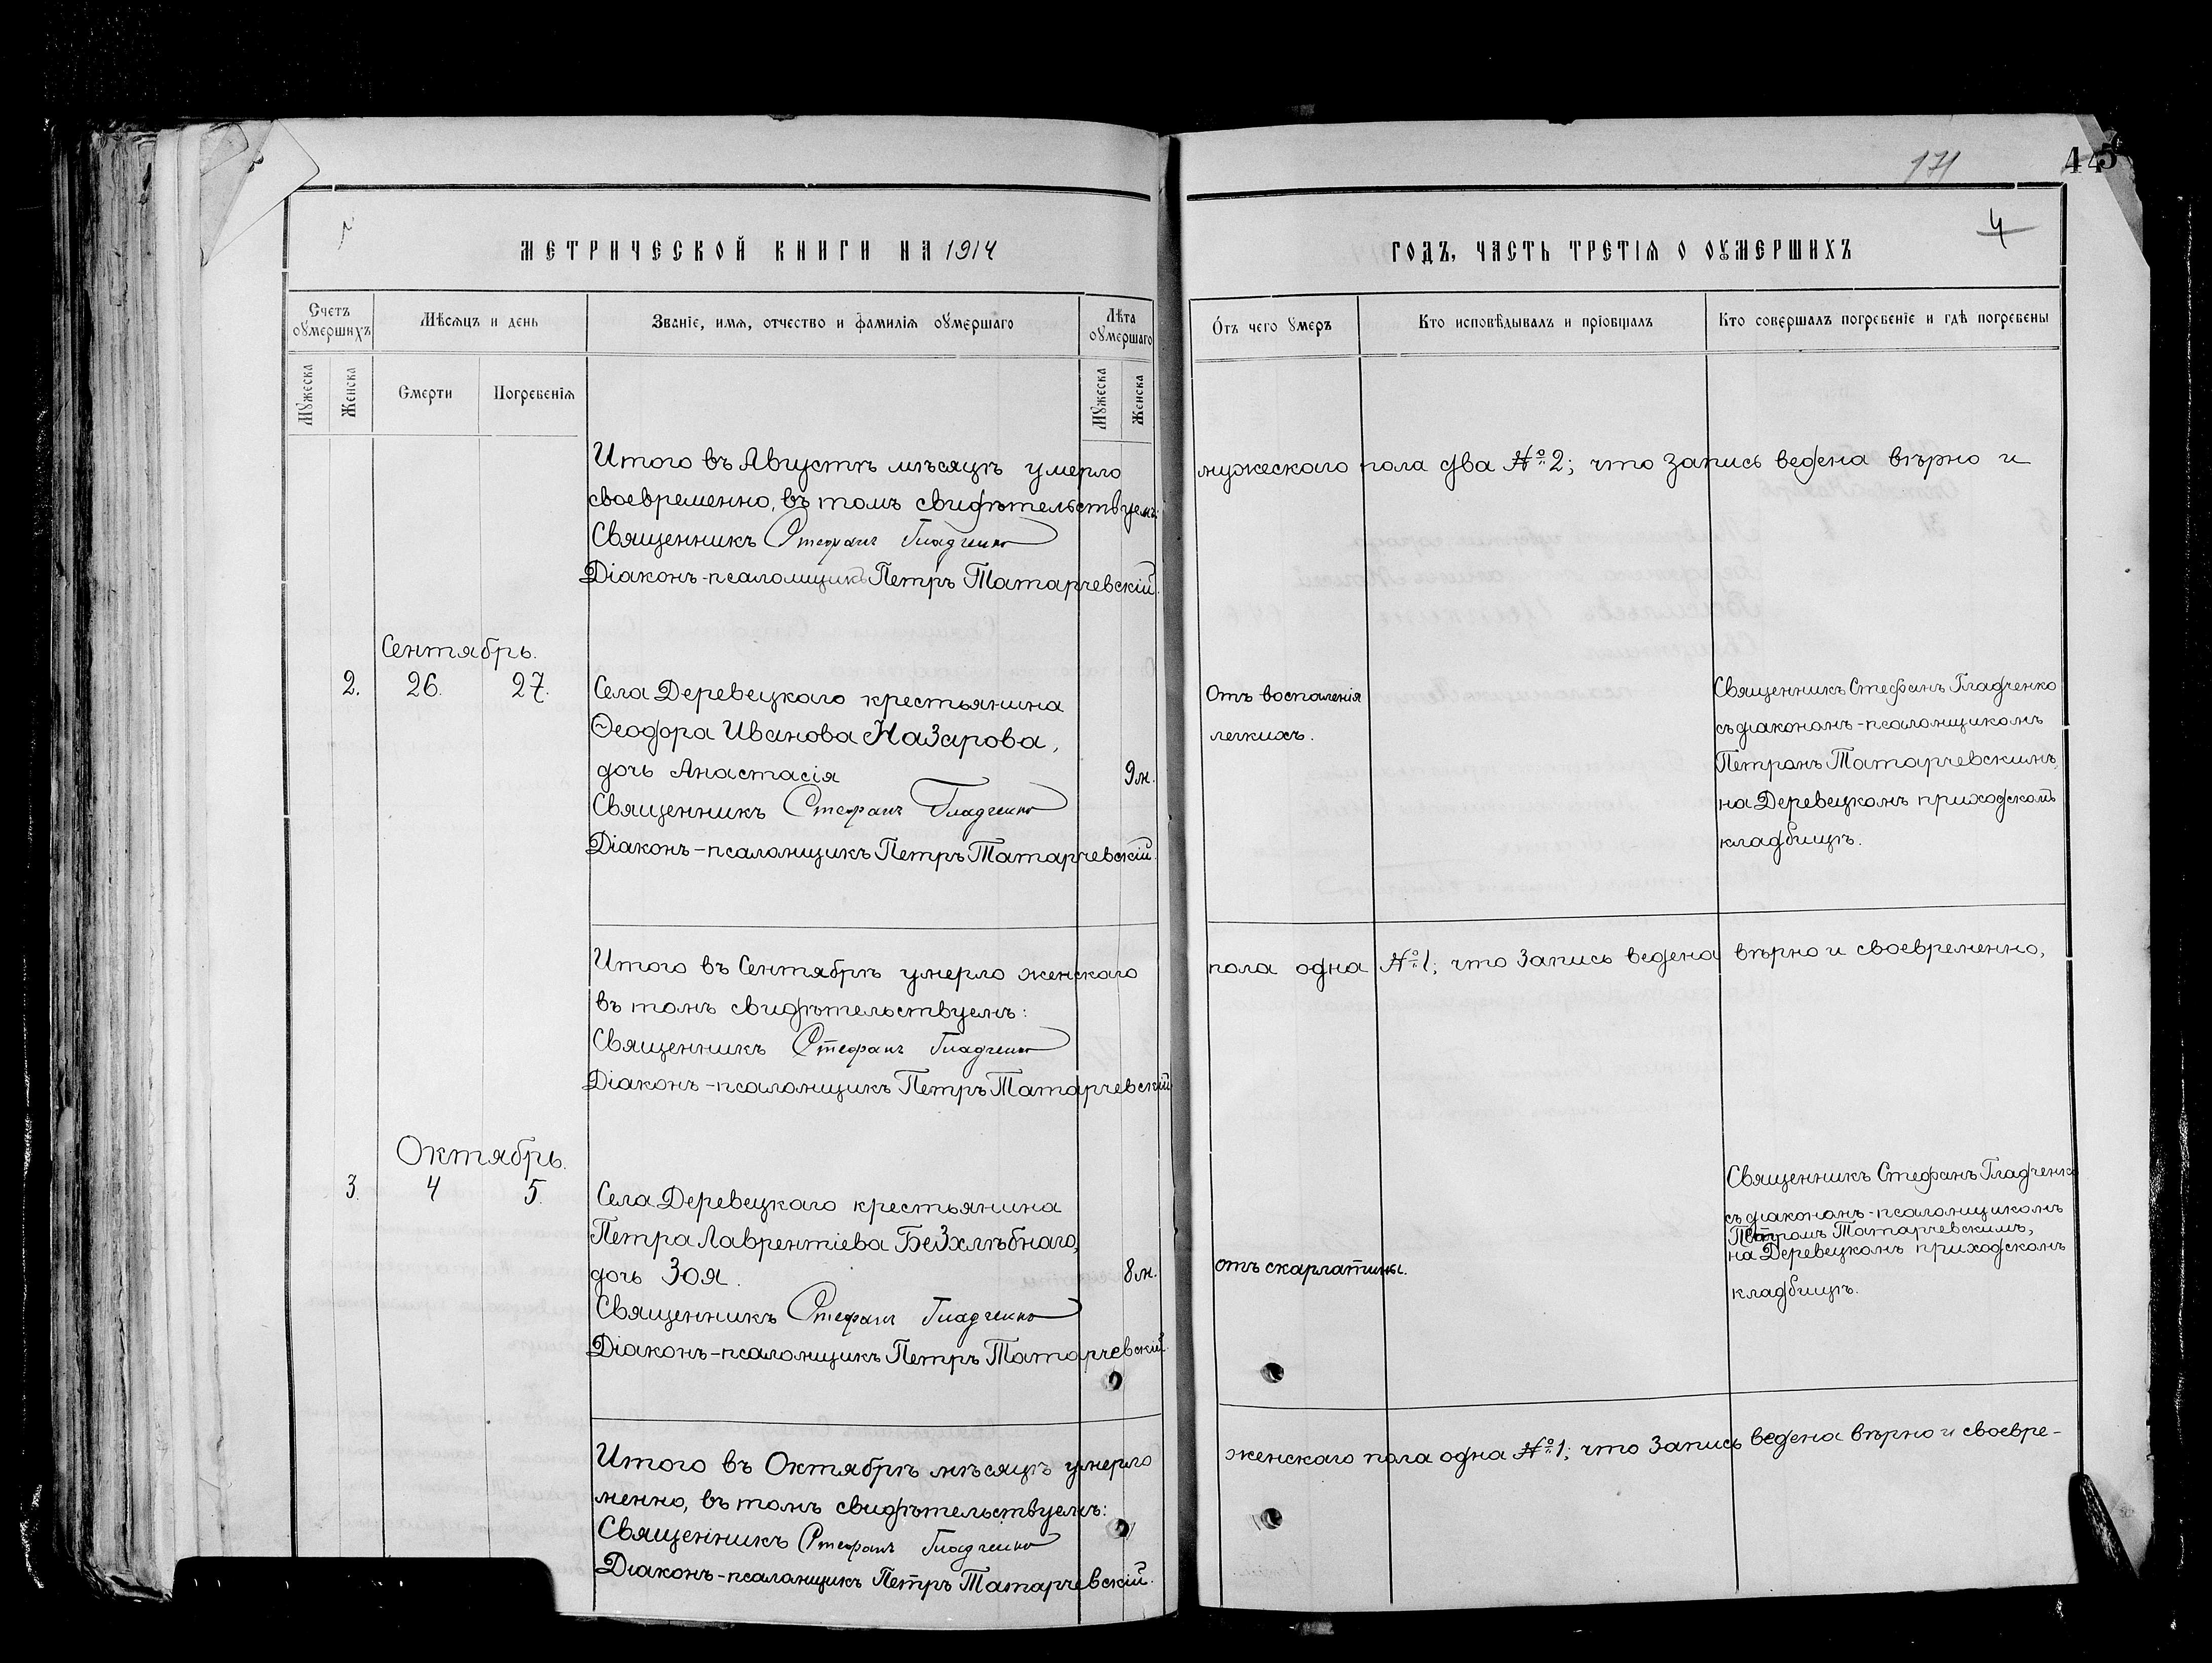 171
445
4
МЕТРИЧЕСКОЙ КНИГИ НА 1914
ГОДЪ, ЧАСТЬ ТРЕТІѦ О ОУМЕРШИХЪ
Счетъ оумершихъ
Мѣсяцъ и день
Званіе, имя, отчество и фамилія оумершаго
Лѣта оумершаго
Отъ чего умеръ
Кто исповѣдывалъ и пріобщалъ
Кто совершалъ погребеніе и гдѣ погребены
Мужеска
Женска
Смерти
Погребенія
Мужеска
Женска
Итого въ Августѣ мѣсяцѣ умерло мужескаго пола два № 2; что запись ведена вѣрно и
своевременно, въ томъ свидѣтельствуемъ:
Священникъ Стефанъ Гладченко
Діаконъ-псаломщикъ Петръ Татарчевскій.
Сентябрь.
2. 26. 27.
Села Деревецкаго крестьянина
Ѳеодора Иванова Назарова,
дочь Анастасія
9 м.
Священникъ Стефанъ Гладченко
Діаконъ-псаломщикъ Петръ Татарчевскій.
Отъ воспаленія
легкихъ.
Священникъ Стефанъ Гладченко
съ діакономъ-псаломщикомъ
Петромъ Татарчевскимъ,
на Деревецкомъ приходскомъ
кладбищѣ.
Итого въ Сентябрѣ умерло женскаго пола одна № 1; что запись ведена вѣрно и своевременно,
въ томъ свидѣтельствуемъ:
Священникъ Стефанъ Гладченко
Діаконъ-псаломщикъ Петръ Татарчевскій
Октябрь.
3. 4 5.
Села Деревецкаго крестьянина
Петра Лаврентіева Безхлѣбнаго,
дочь Зоя.
8 м.
Священникъ Стефанъ Гладченко
Діаконъ-псаломщикъ Петръ Татарчевскій.
отъ скарлатины.
Священникъ Стефанъ Гладченко
съ діакономъ-псаломщикомъ
Петромъ Татарчевскимъ,
на Деревецкомъ приходскомъ
кладбищѣ.
Итого въ Октябрѣ мѣсяцѣ умерло женскаго пола одна № 1; что запись ведена вѣрно и своевре-
менно, въ томъ свидѣтельствуемъ:
Священникъ Стефанъ Гладченко
Діаконъ-псаломщикъ Петръ Татарчевскій.